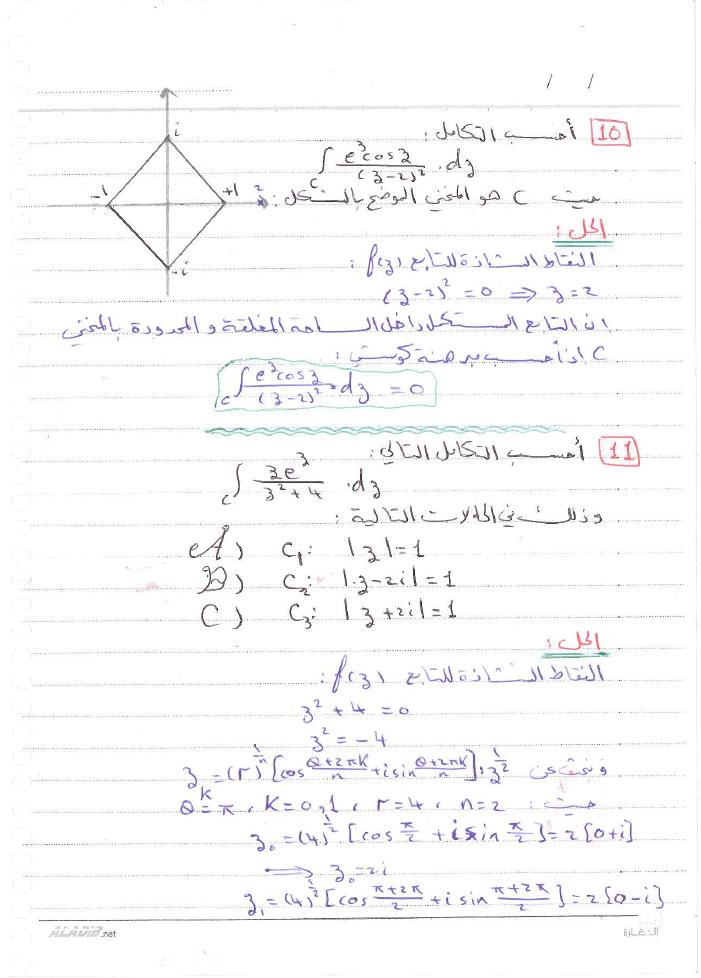 / /
10 أحسب التكامل :
∫_C e^z cos z / (z-2)² . dz
حيث C هو المنحني الموضح بالشكل :
i
-1 +1 2
-i
الحل :
النقاط الشاذة للتابع f(z) :
(z-2)² = 0 ⇒ z = 2
ان التابع المستكمل داخل الساحة المغلقة و المحدودة بالمنحني
C اذاً حسب مبرهنة كوشي :
∫_C e^z cos z / (z-2)² . dz = 0
11 أحسب التكامل التالي :
∫_C ze^z / z²+4 . dz
وذلك في الحالات التالية :
A) C₁: |z| = 1
B) C₂: |z-2i| = 1
C) C₃: |z+2i| = 1
الحل :
النقاط الشاذة للتابع f(z) :
z² + 4 = 0
z² = -4
z_k = (r)^(1/n) [cos (θ+2πK)/n + i sin (θ+2πK)/n] , z^(1/2)
حيث : n=2 , r=4 , K=0,1 , θ=π
z₀ = (4)^(1/2) [cos π/2 + i sin π/2] = 2[0+i]
⇒ z₀ = 2i
z₁ = (4)^(1/2) [cos (π+2π)/2 + i sin (π+2π)/2] = 2[0-i]
ALADIB.net